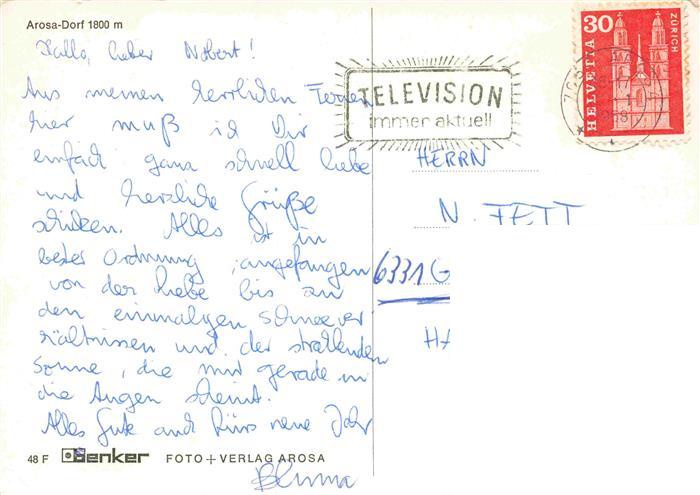 Arosa-Dorf 1800 m
Hallo, lieber Nobert!
Aus meinen herrlichen Ferien
hier muß ich Dir
einfach ganz schnell liebe
und herzliche Grüße
schicken. Alles ist in
bester Ordnung, angefangen
von der Liebe bis zu
den einmaligen Schneever
hältnissen und der strahlenden
Sonne, die mir gerade in
die Augen scheint.
Alles Gute auch fürs neue Jahr
48 F Denker FOTO + VERLAG AROSA
TELEVISION
immer aktuell
HELVETIA 30 ZÜRICH
HERRN
N. FETT
6331 G
HA